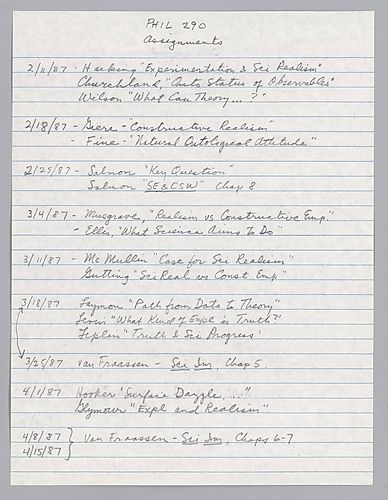 PHIL 290
Assignments
2/11/87 - Hacking "Experimentation & Sci Realism"
Churchland, "Onto Status of Observables"
Wilson "What Can Theory...?"
2/18/87 - Giere - "Constructive Realism"
- Fine - "Natural Ontological Attitude"
2/25/87 - Salmon "Key Question"
Salmon "SE&CSW" Chap 8
3/4/87 - Musgrave, "Realism vs Constructive Emp."
- Ellis, "What Science Aims to Do"
3/11/87 - McMullin "Case for Sci Realism"
Gutting "Sci Real vs Const Emp"
3/18/87 Laymon "Path from Data to Theory"
Levin "What Kind of Expl is Truth?"
Leplin "Truth & Sci Progress"
3/25/87 van Fraassen - Sci Im, Chap 5.
4/1/87 Hooker "Surface Dazzle, ..."
Glymour "Expl and Realism"
4/8/87 } van Fraassen - Sci Im, Chaps 6-7
4/15/87